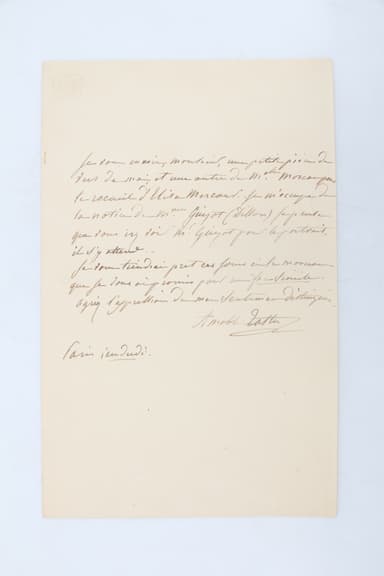 Je vous envoie, monsieur, une petite pièce de
vers de moi, et une autre de Melle Mercœur
le recueil d'Elisa Mercœur. Je m'occupe de
la notice de Mme Guizot (Dillon) Je pense
que vous irez voir Mr Guizot pour le portrait,
il s'y attend.
Je vous tiendrai prêt ces jours ci le morceau
que je vous ai promis pour
agréez l'expression de mes sentimens distingués.
Amable Tastu
Paris jeudi.